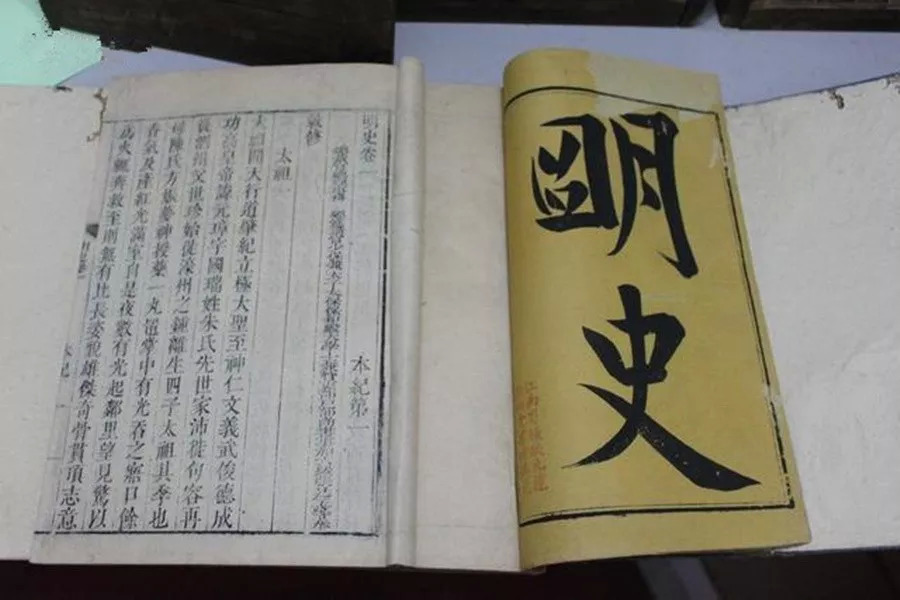 明史
明史卷一
本紀第一
敕修
太祖一
太祖開天行道肇紀立極大聖至神仁文義武俊德成
功高皇帝諱元璋字國瑞姓朱氏先世家沛徙句容再
徙泗州父世珍始徙濠州之鍾離生四子太祖其季也
母陳氏方娠夢神授藥一丸置掌中有光吞之寤口餘
香氣及產紅光滿室自是夜數有光起鄰里望見驚以
爲火輒奔救至則無有比長姿貌雄傑奇骨貫頂志意
本紀